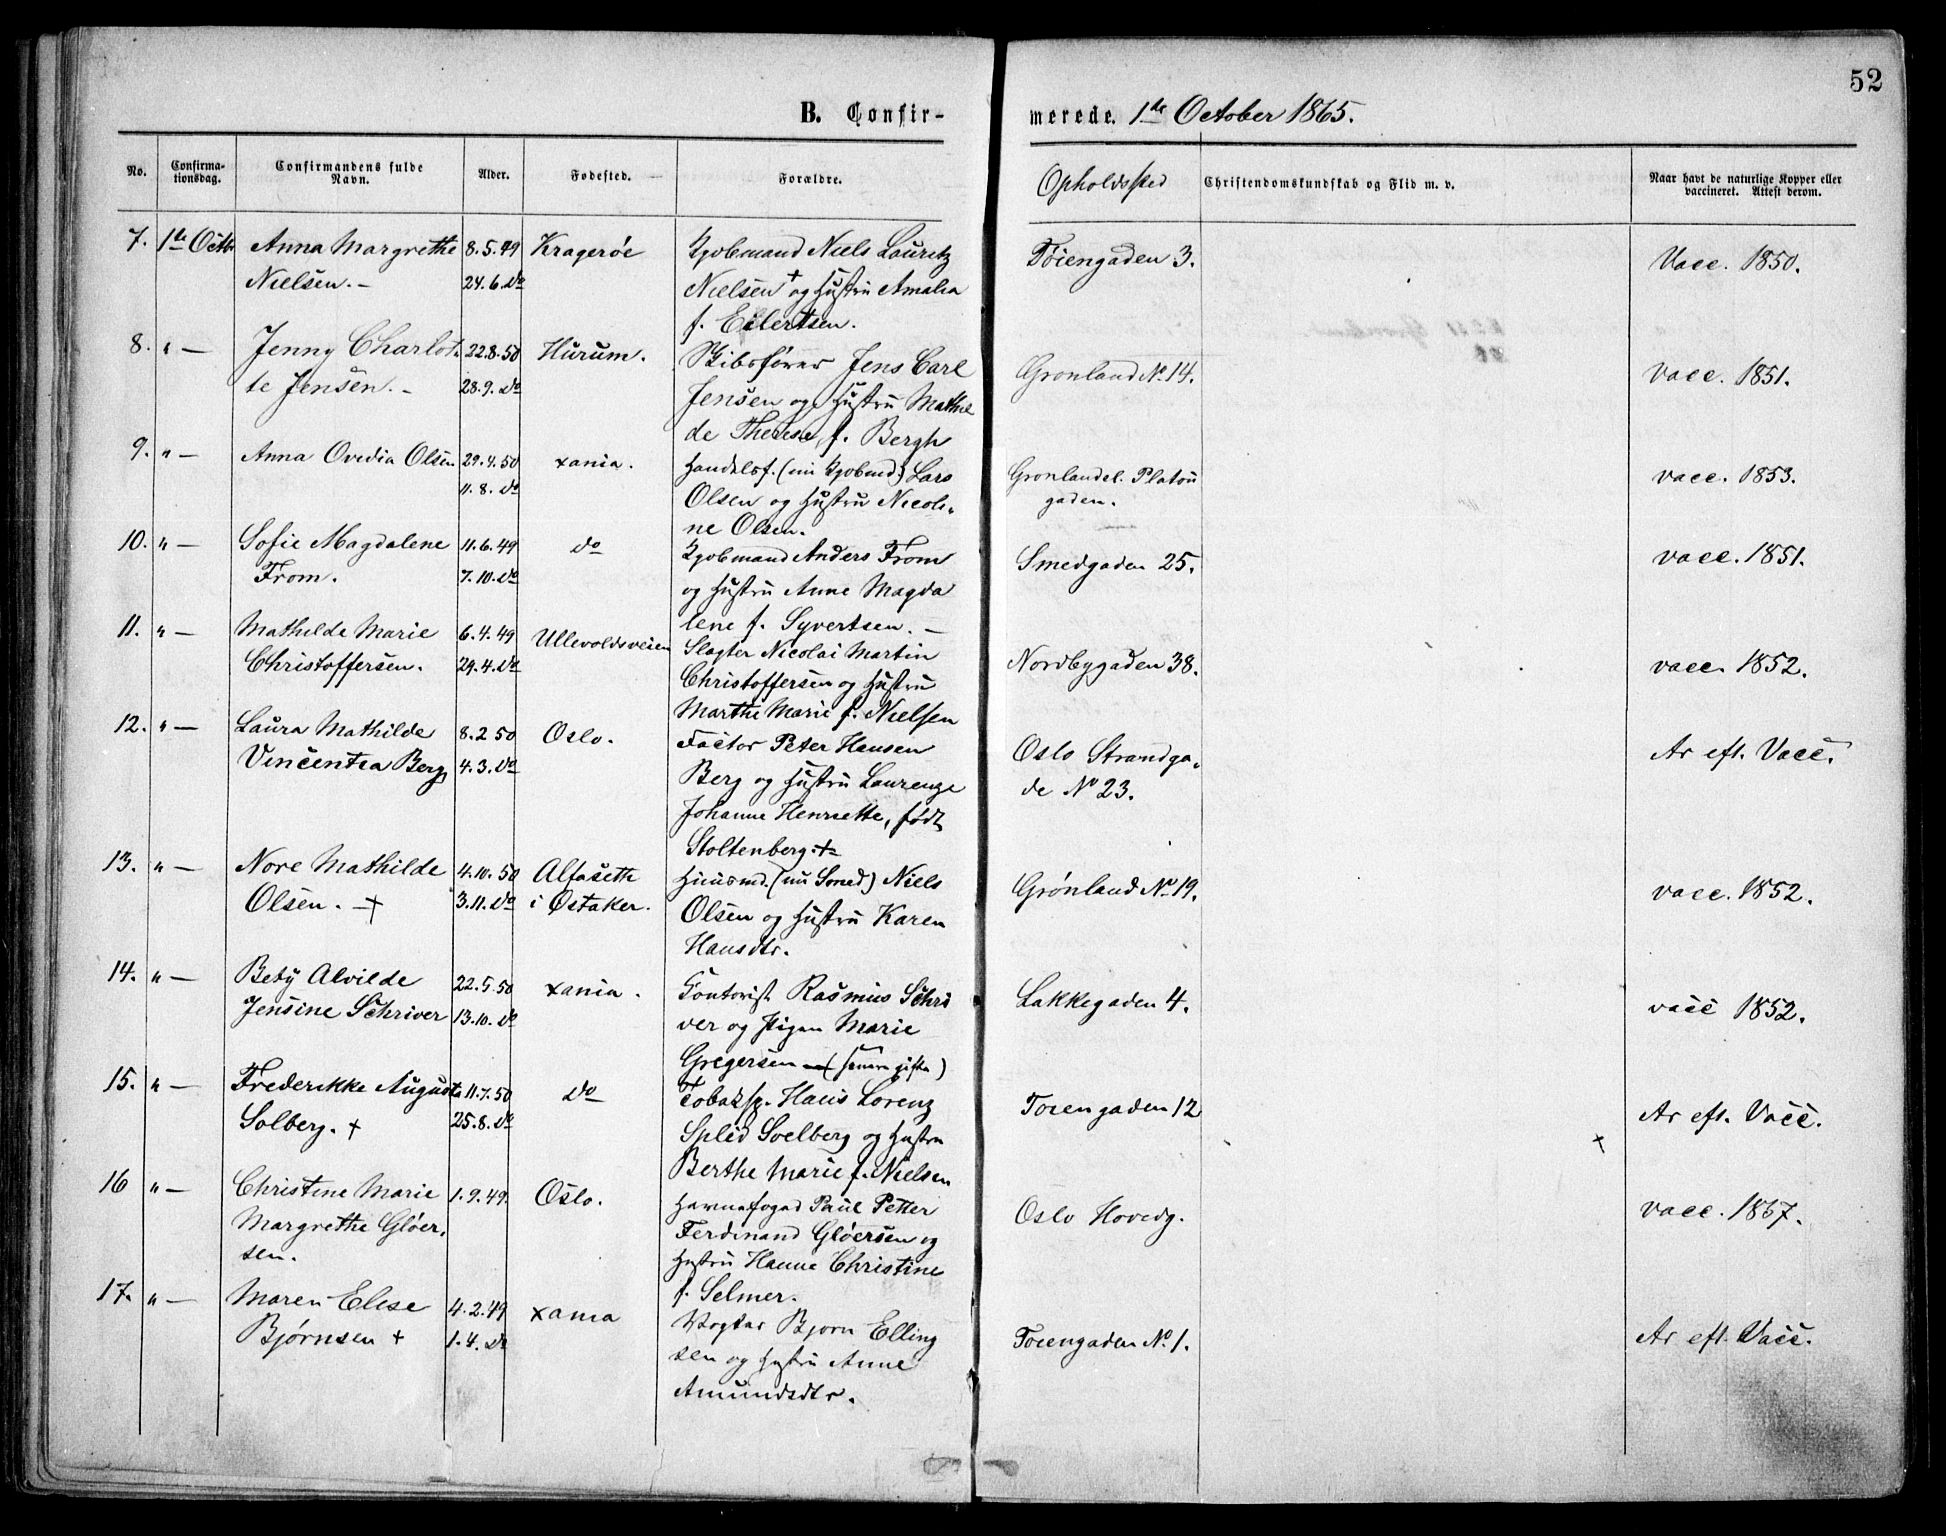 52
B. Confir-
merede. 1ste October 1865.
No.
Confirma-
tionsdag.
Confirmandens fulde
Navn.
Alder.
Fødested.
Forældre.
Opholdssted
Christendomskundskab og Flid m. v.
Naar havt de naturlige Kopper eller
vaccineret. Attest derom.
7. 1ste Octbr Anna Margrethe 8.5.49 Kragerøe Kjøbmand Niels Lauritz Töiengaden 3. Vacc. 1850.
Nielsen. – 24.6. do Nielsen + og Hustru Amalia
f. Eilertsen.
8. " — Jenny Charlot- 22.8.50 Hurum. Skibsfører Jens Carl Gronland No 14. vacc. 1851.
te Jensen. – 28.9. do Jensen og Hustru Mathil
de Therese, f. Bergh
9. " — Anna Ovedia Olsen 29.4.50 xania. Handelsf. (nu Kjøbmd) Lars Gronlandsl. Platou vacc. 1853.
11.8. do Olsen og Hustru Nicoli- gaden.
ne Olsen.
10. " — Sofie Magdalene 11.6.49 do Kjøbmand Anders From Smedgaden 25. vacc. 1851.
From. 7.10. do og Hustru Anne Magda
lene f. Syvertsen. –
11. " — Mathilde Marie 6.4.49 Ullevoldsveien Slagter Nicolai Martin Nordbygaden 38. vacc. 1852.
Christoffersen. 29.4. do Christoffersen og Hustru
Marthe Marie f. Nielsen
12. " — Laura Mathilde 8.2 50 Oslo. Factor Peter Hansen Oslo Strandga- Ar eft. Vacc.
Vincentia Berg 4.3. do Berg og Hustru Laurenze de No 23.
Johanne Henriette, født
Stoltenberg. +
13. " — Nore Mathilde 4.10.50 Alfaseth Huusmd. (nu Smed) Niels Grønland No 19. vacc. 1852.
Olsen. – + 3.11. do i Østaker. Olsen og Hustru Karen
Hansdtr.
14. " — Bety Alvilde 22.5.50 xania. Contorist Rasmus Schri Lakkegaden 4. vacc 1852.
Jensine Schriver 13.10. do ver og Pigen Marie
Gregersen (senere gifte)
15. " — Frederikke Augusta 11.7.50 do Tobaksp. Hans Lorenz Toiengaden 12 Ar eft. Vacc.
Solberg. + 25.8. do Splid Soelberg og Hustru +
Berthe Marie f. Nielsen
16 " — Christine Marie 1.9.49. Oslo. Havnefoged Paul Petter Oslo Hovedg. vacc. 1857.
Margrethe Gløer- Ferdinand Gløersen og
sen. Hustru Hanne Christine
f. Selmer.
17. " — Maren Elise 4.2.49 xania Vogter Bjorn Elling Toiengaden No. 1. Ar eft. Vacc.
Bjørnsen + 1.4. do sen og Hustru Anne
Amundsdtr.